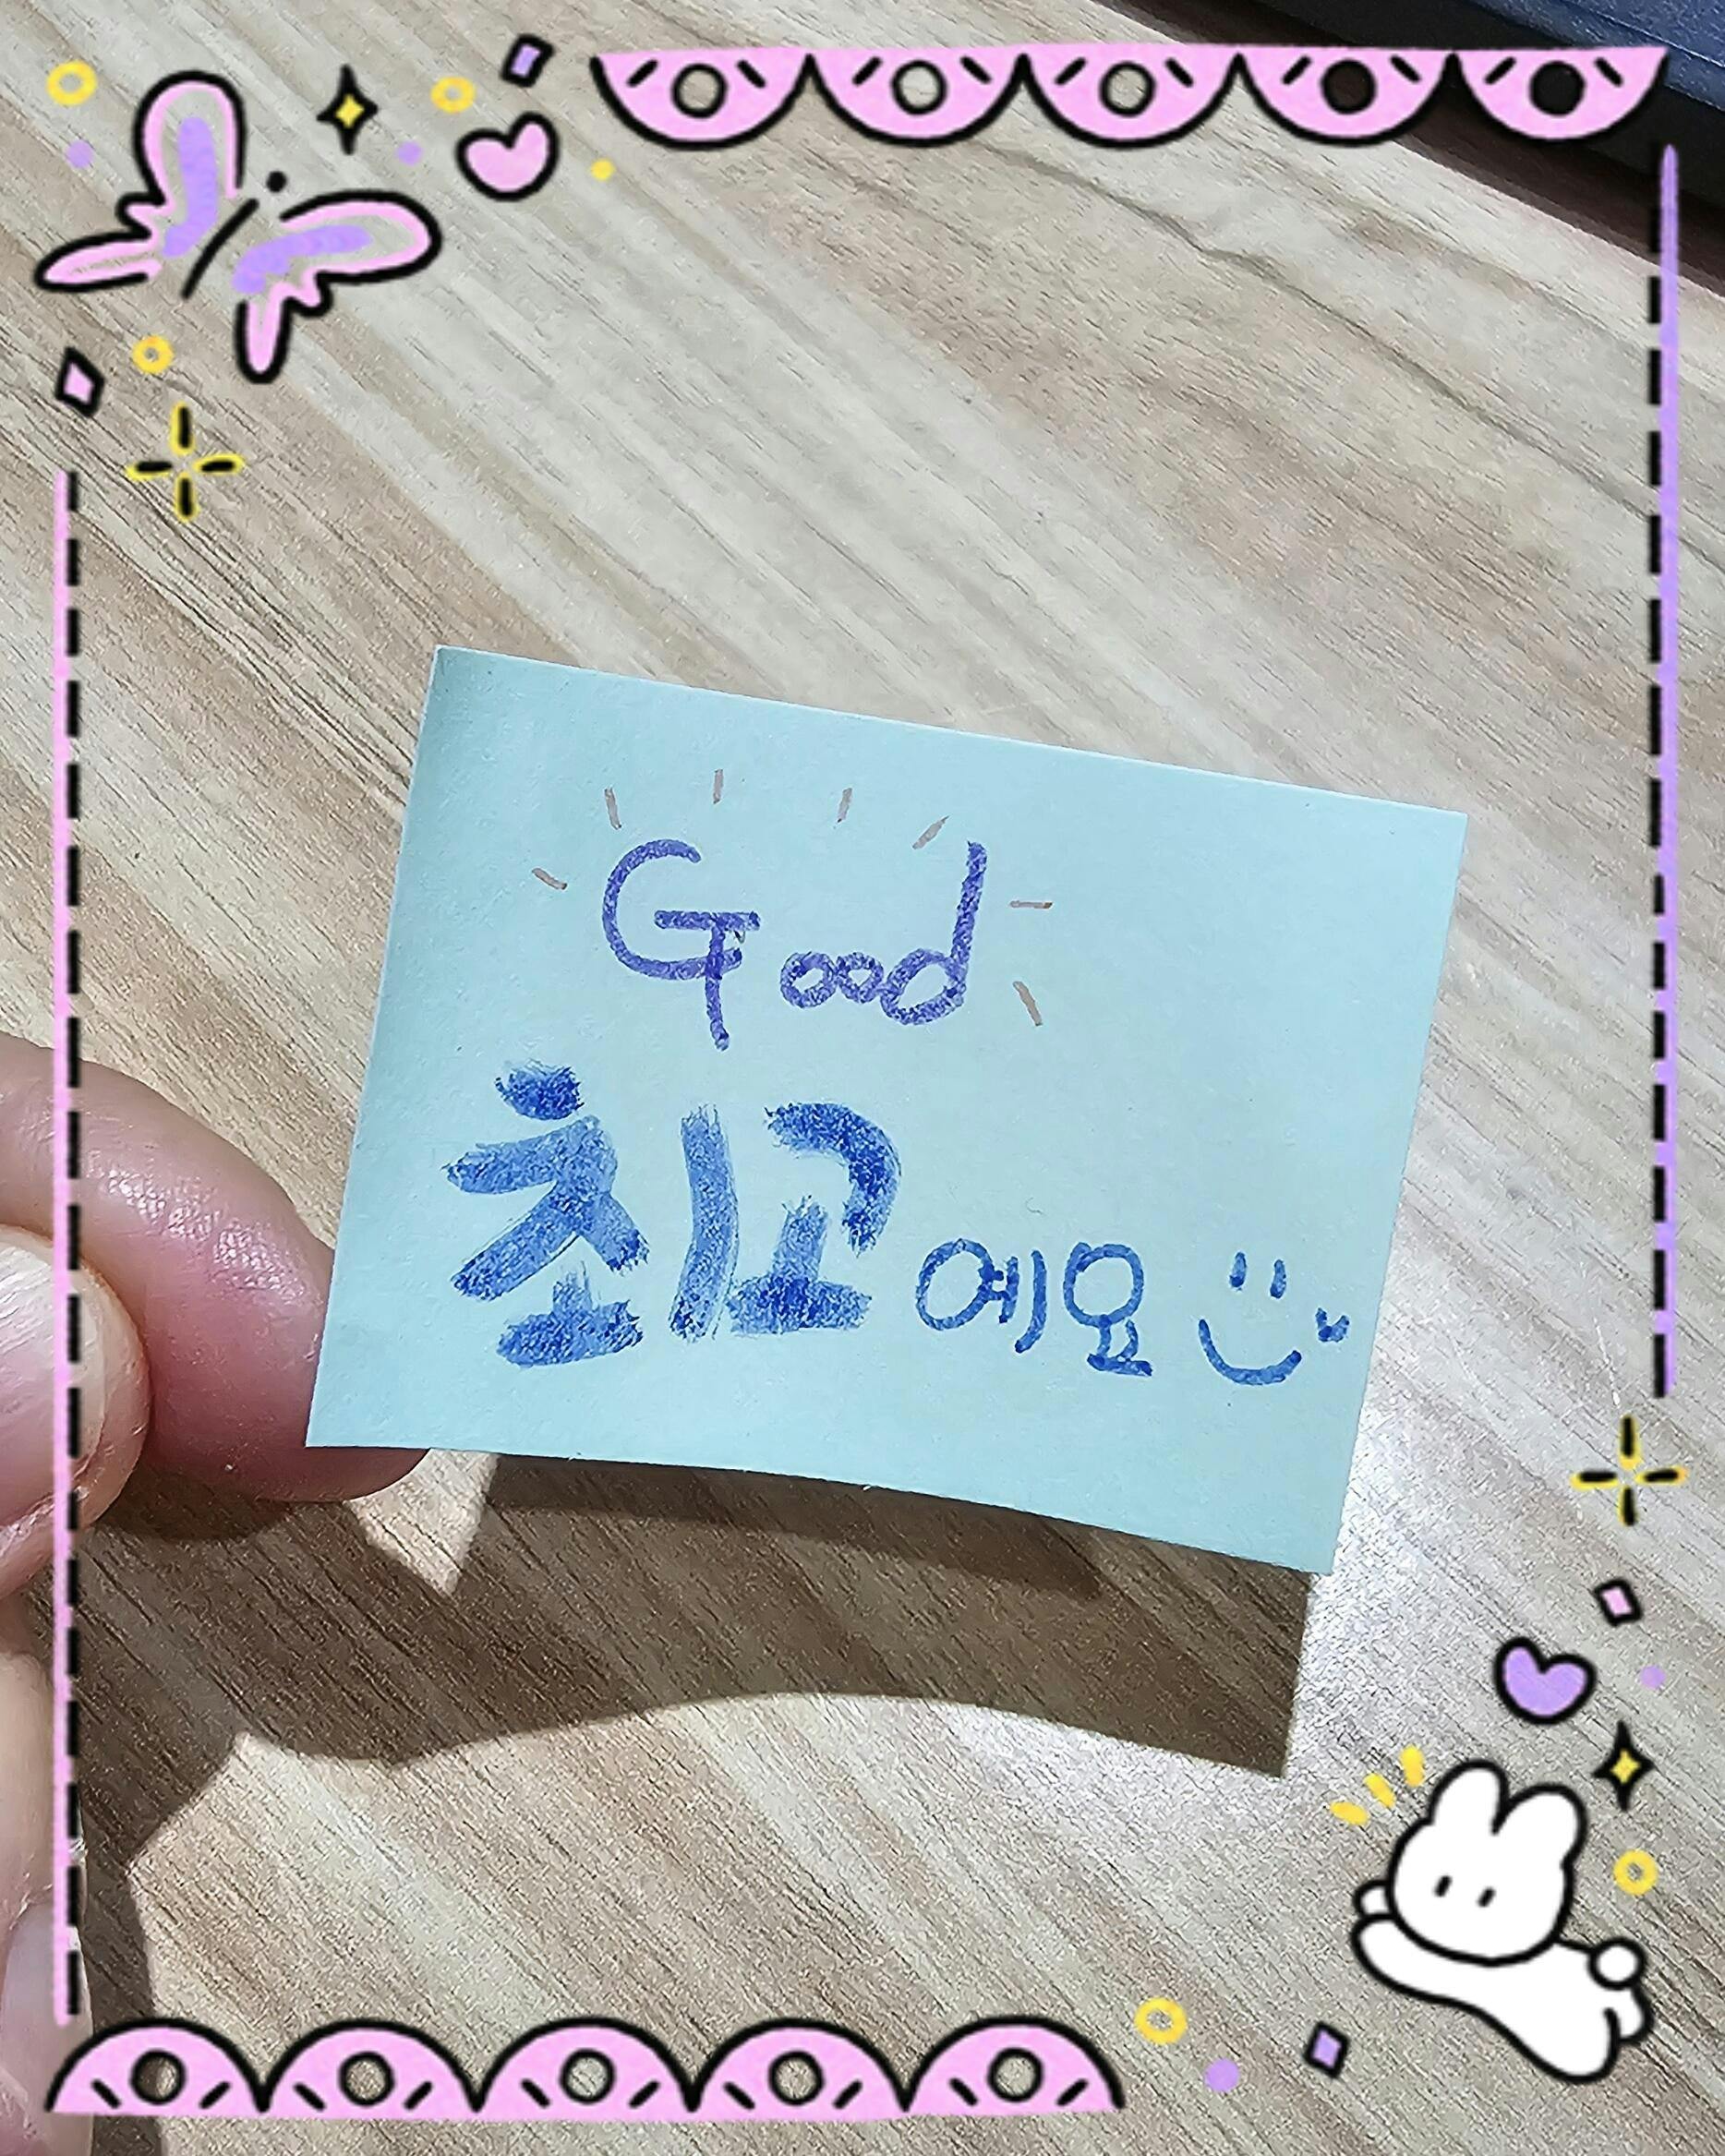 Good
최고예요